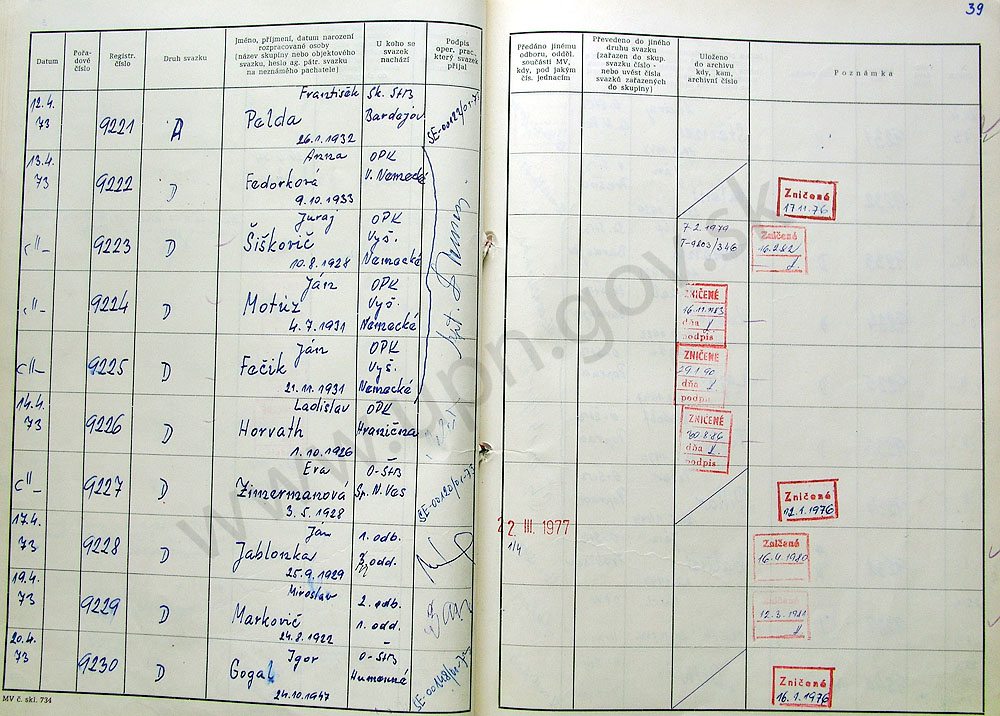 39
Datum
Pořadové číslo
Registr. číslo
Druh svazku
Jméno, příjmení, datum narození
rozpracované osoby
(název skupiny nebo objektového
svazku, heslo ag. pátr. svazku
na neznámého pachatele)
U koho se
svazek
nachází
Podpis
oper. prac.,
který svazek
přijal
Předáno jinému
odboru, odděl.
součásti MV,
kdy, pod jakým
čís. jednacím
Převedeno do jiného
druhu svazku
(zařazen do skup.
svazku číslo -
nebo uvést čísla
svazků zařazených
do skupiny)
Uloženo
do archivu
kdy, kam,
archivní číslo
Poznámka
12.4. František Sk. StB
73 9221 A Pelda Bardejov
26.1.1932
13.4. Anna OPK
73 9222 D Fedorková V. Nemecké
9.10.1933
Zničené
17.11.76
Juraj OPK
-"- 9223 D Šiškovič Vyš.
10.8.1928 Nemecké
7.2.1979
T-9803/346
Zničené
16.2.82
Ján OPK
-"- 9224 D Motúz Vyš.
4.7.1931 Nemecké
ZNIČENÉ
16.11.1983
dňa
podpis
Ján OPK
-"- 9225 D Fačik Vyš.
21.11.1931 Nemecké
ZNIČENÉ
29.1.90
dňa
podpis
14.4. Ladislav OPK
73 9226 D Horvath Hraničná
1.10.1926
ZNIČENÉ
30.8.86
dňa
podpis
Eva O-ŠtB
-"- 9227 D Zimermanová Sp. N. Ves
3.5.1928
SE-00120/01-73
Zničené
12.1.1976
17.4. Ján 1. odb.
73 9228 D Jablonka 3. odd.
25.9.1929
22 III. 1977
1/4
Zničené
16.4.1980
19.4. Miroslav 2. odb.
73 9229 D Markovič 1. odd.
24.8.1922
12.3.1981
20.4. Igor O-ŠtB
73 9230 D Gogaľ Humenné
24.10.1947
Zničené
16.1.1976
MV č. skl. 734
www.upn.gov.sk